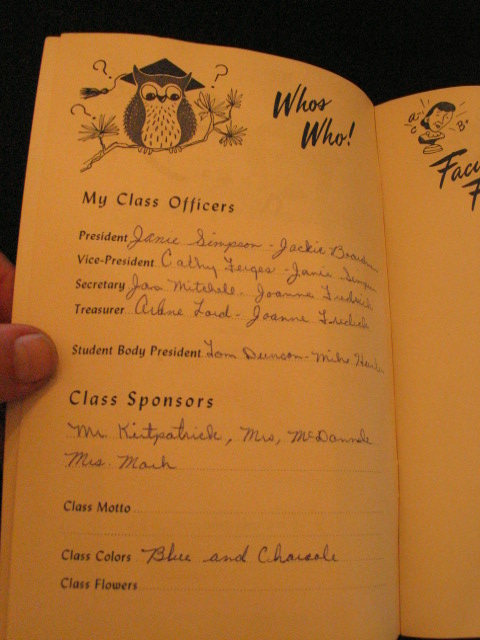 ? ? ?
Whos
Who!
a B+
c
Facu
F
My Class Officers
President Janie Simpson - Jackie
Vice-President Cathy - Janie Simpson
Secretary Jan Mitchell - Joanne
Treasurer Arlene Lord - Joanne
Student Body President Tom - Mike
Class Sponsors
Mr. Kirtpatrick, Mrs, McDannele
Mrs. Mark
Class Motto
Class Colors Blue and
Class Flowers